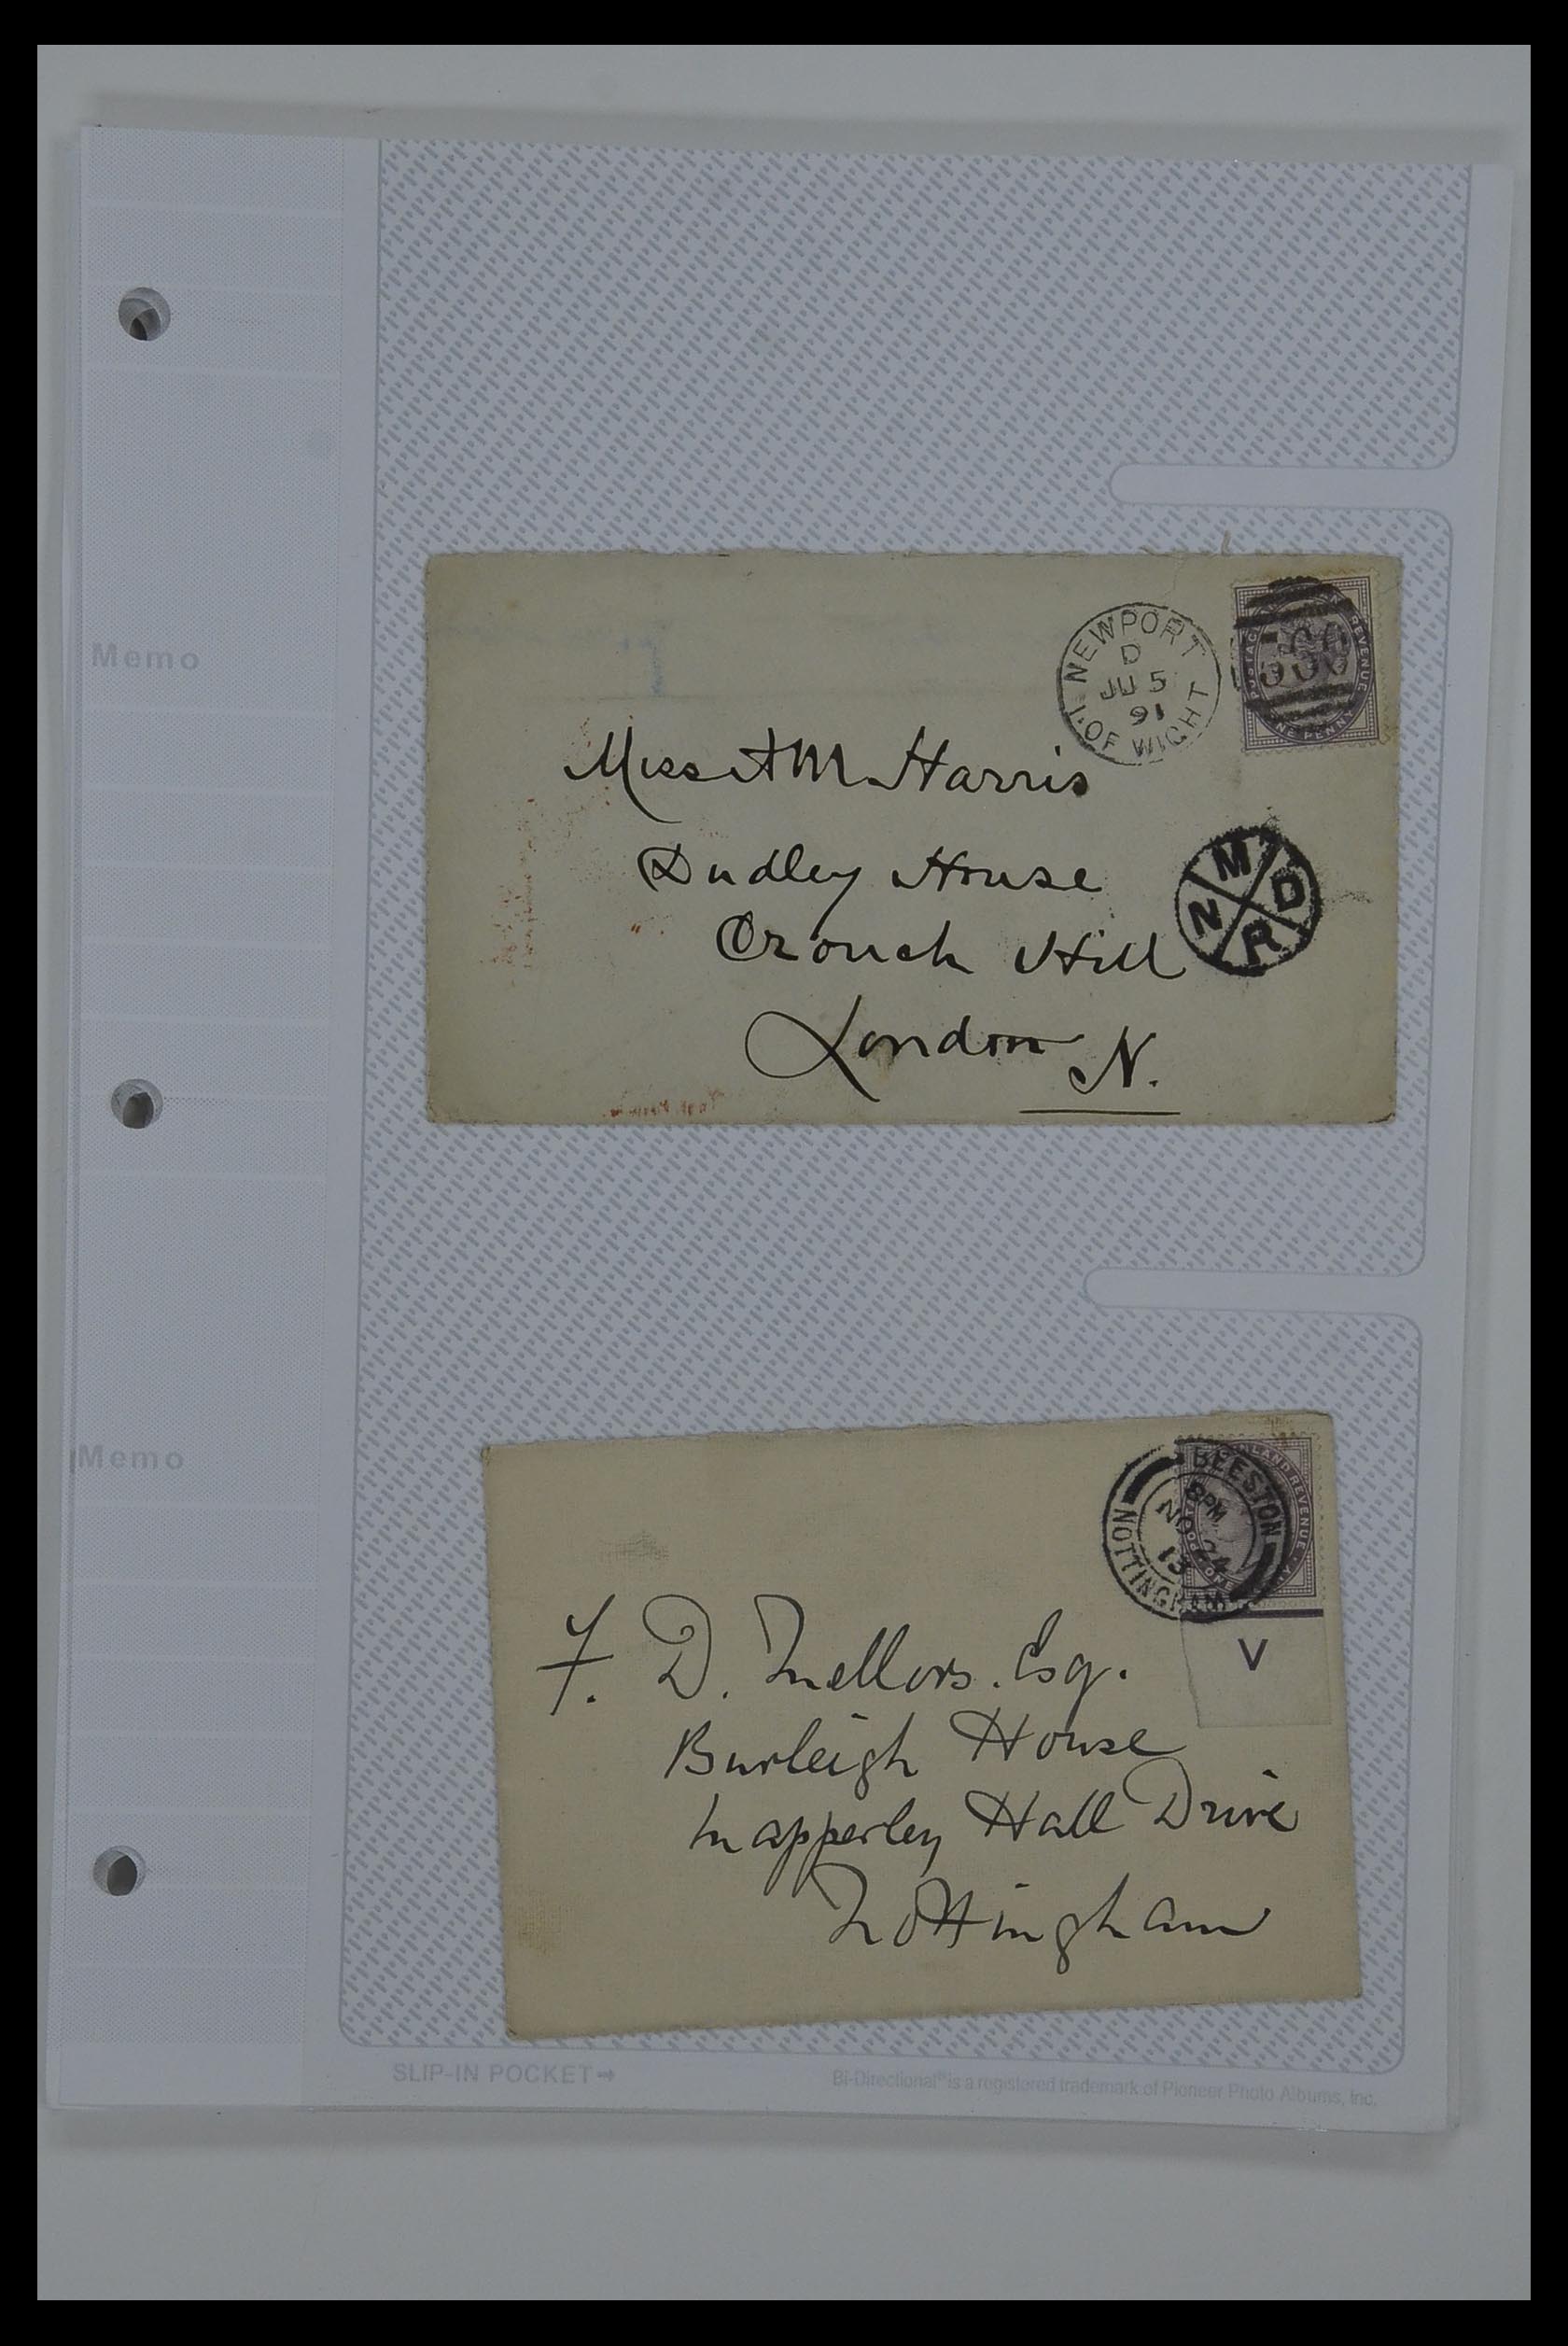 Memo
NEWPORT
D
JU 5
91
I. OF WIGHT
REVENUE
ONE PENNY
Miss A M Harris
Dudley House
Crouch Hill
London N.
M
D
N
R
Memo
BEESTON
8 PM
NO 24
13
NOTTINGHAM
INLAND REVENUE
ONE
V
F. D. Mellors. Esq.
Burleigh House
Mapperley Hall Drive
Nottingham
SLIP-IN POCKET→
Bi-Directional® is a registered trademark of Pioneer Photo Albums, Inc.